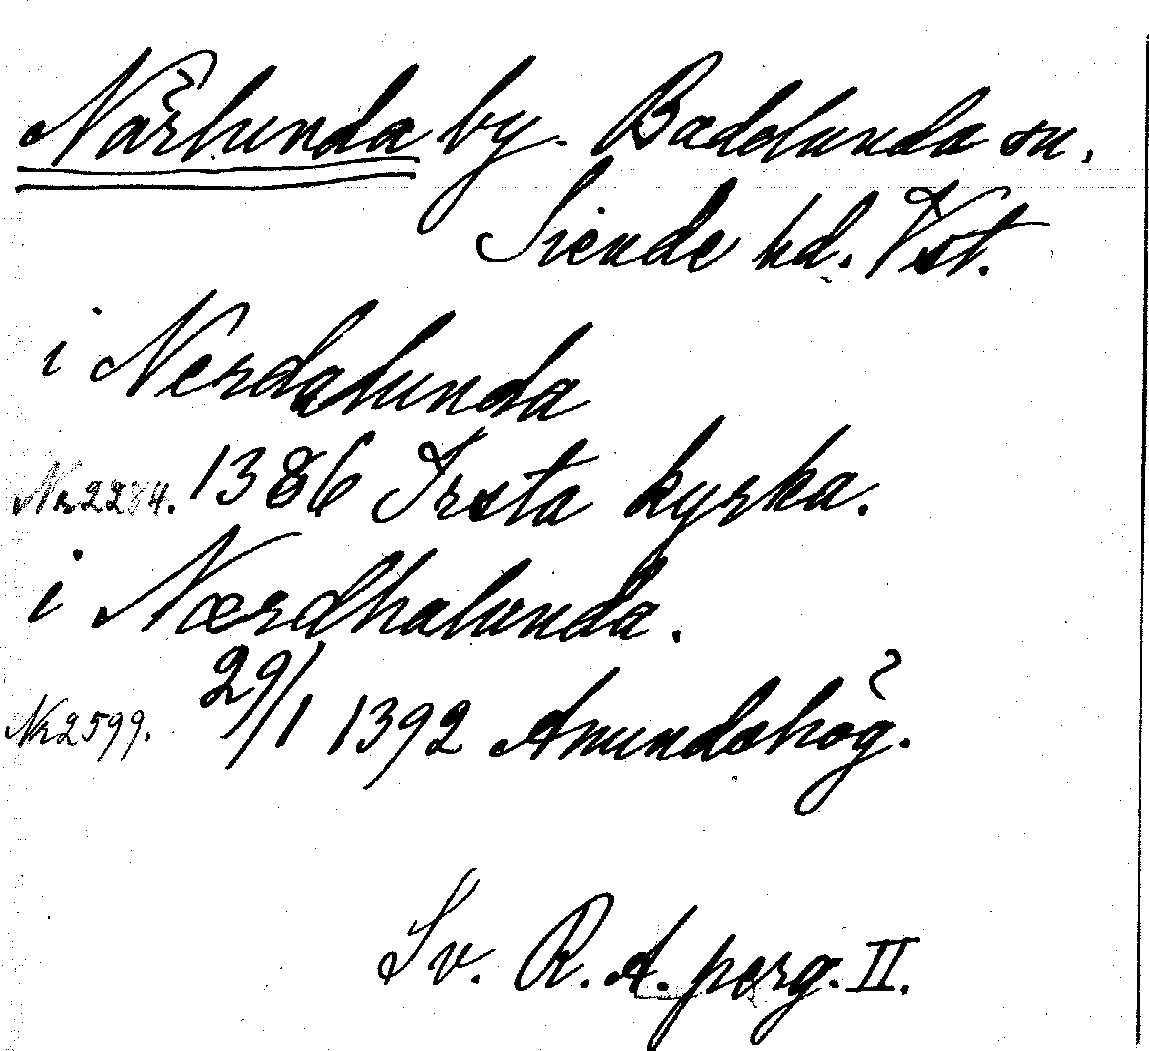 Närlunda by. Badelunda sn.
Siende hd. Vst.
i Nerdalunda
Nr 2284. 1386 Irsta kyrka.
i Nærdhalunda.
Nr 2599. 29/1 1392 Anundshög.
Sv. R. A. perg. II.